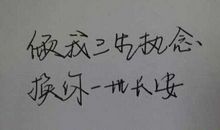 倾我三生执念
换你一世长安